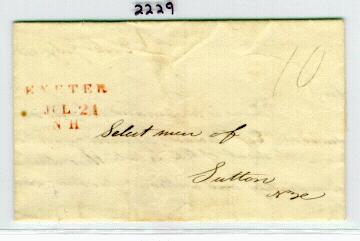 2229
10
EXETER
JUL. 24
N H
Select men of
Sutton